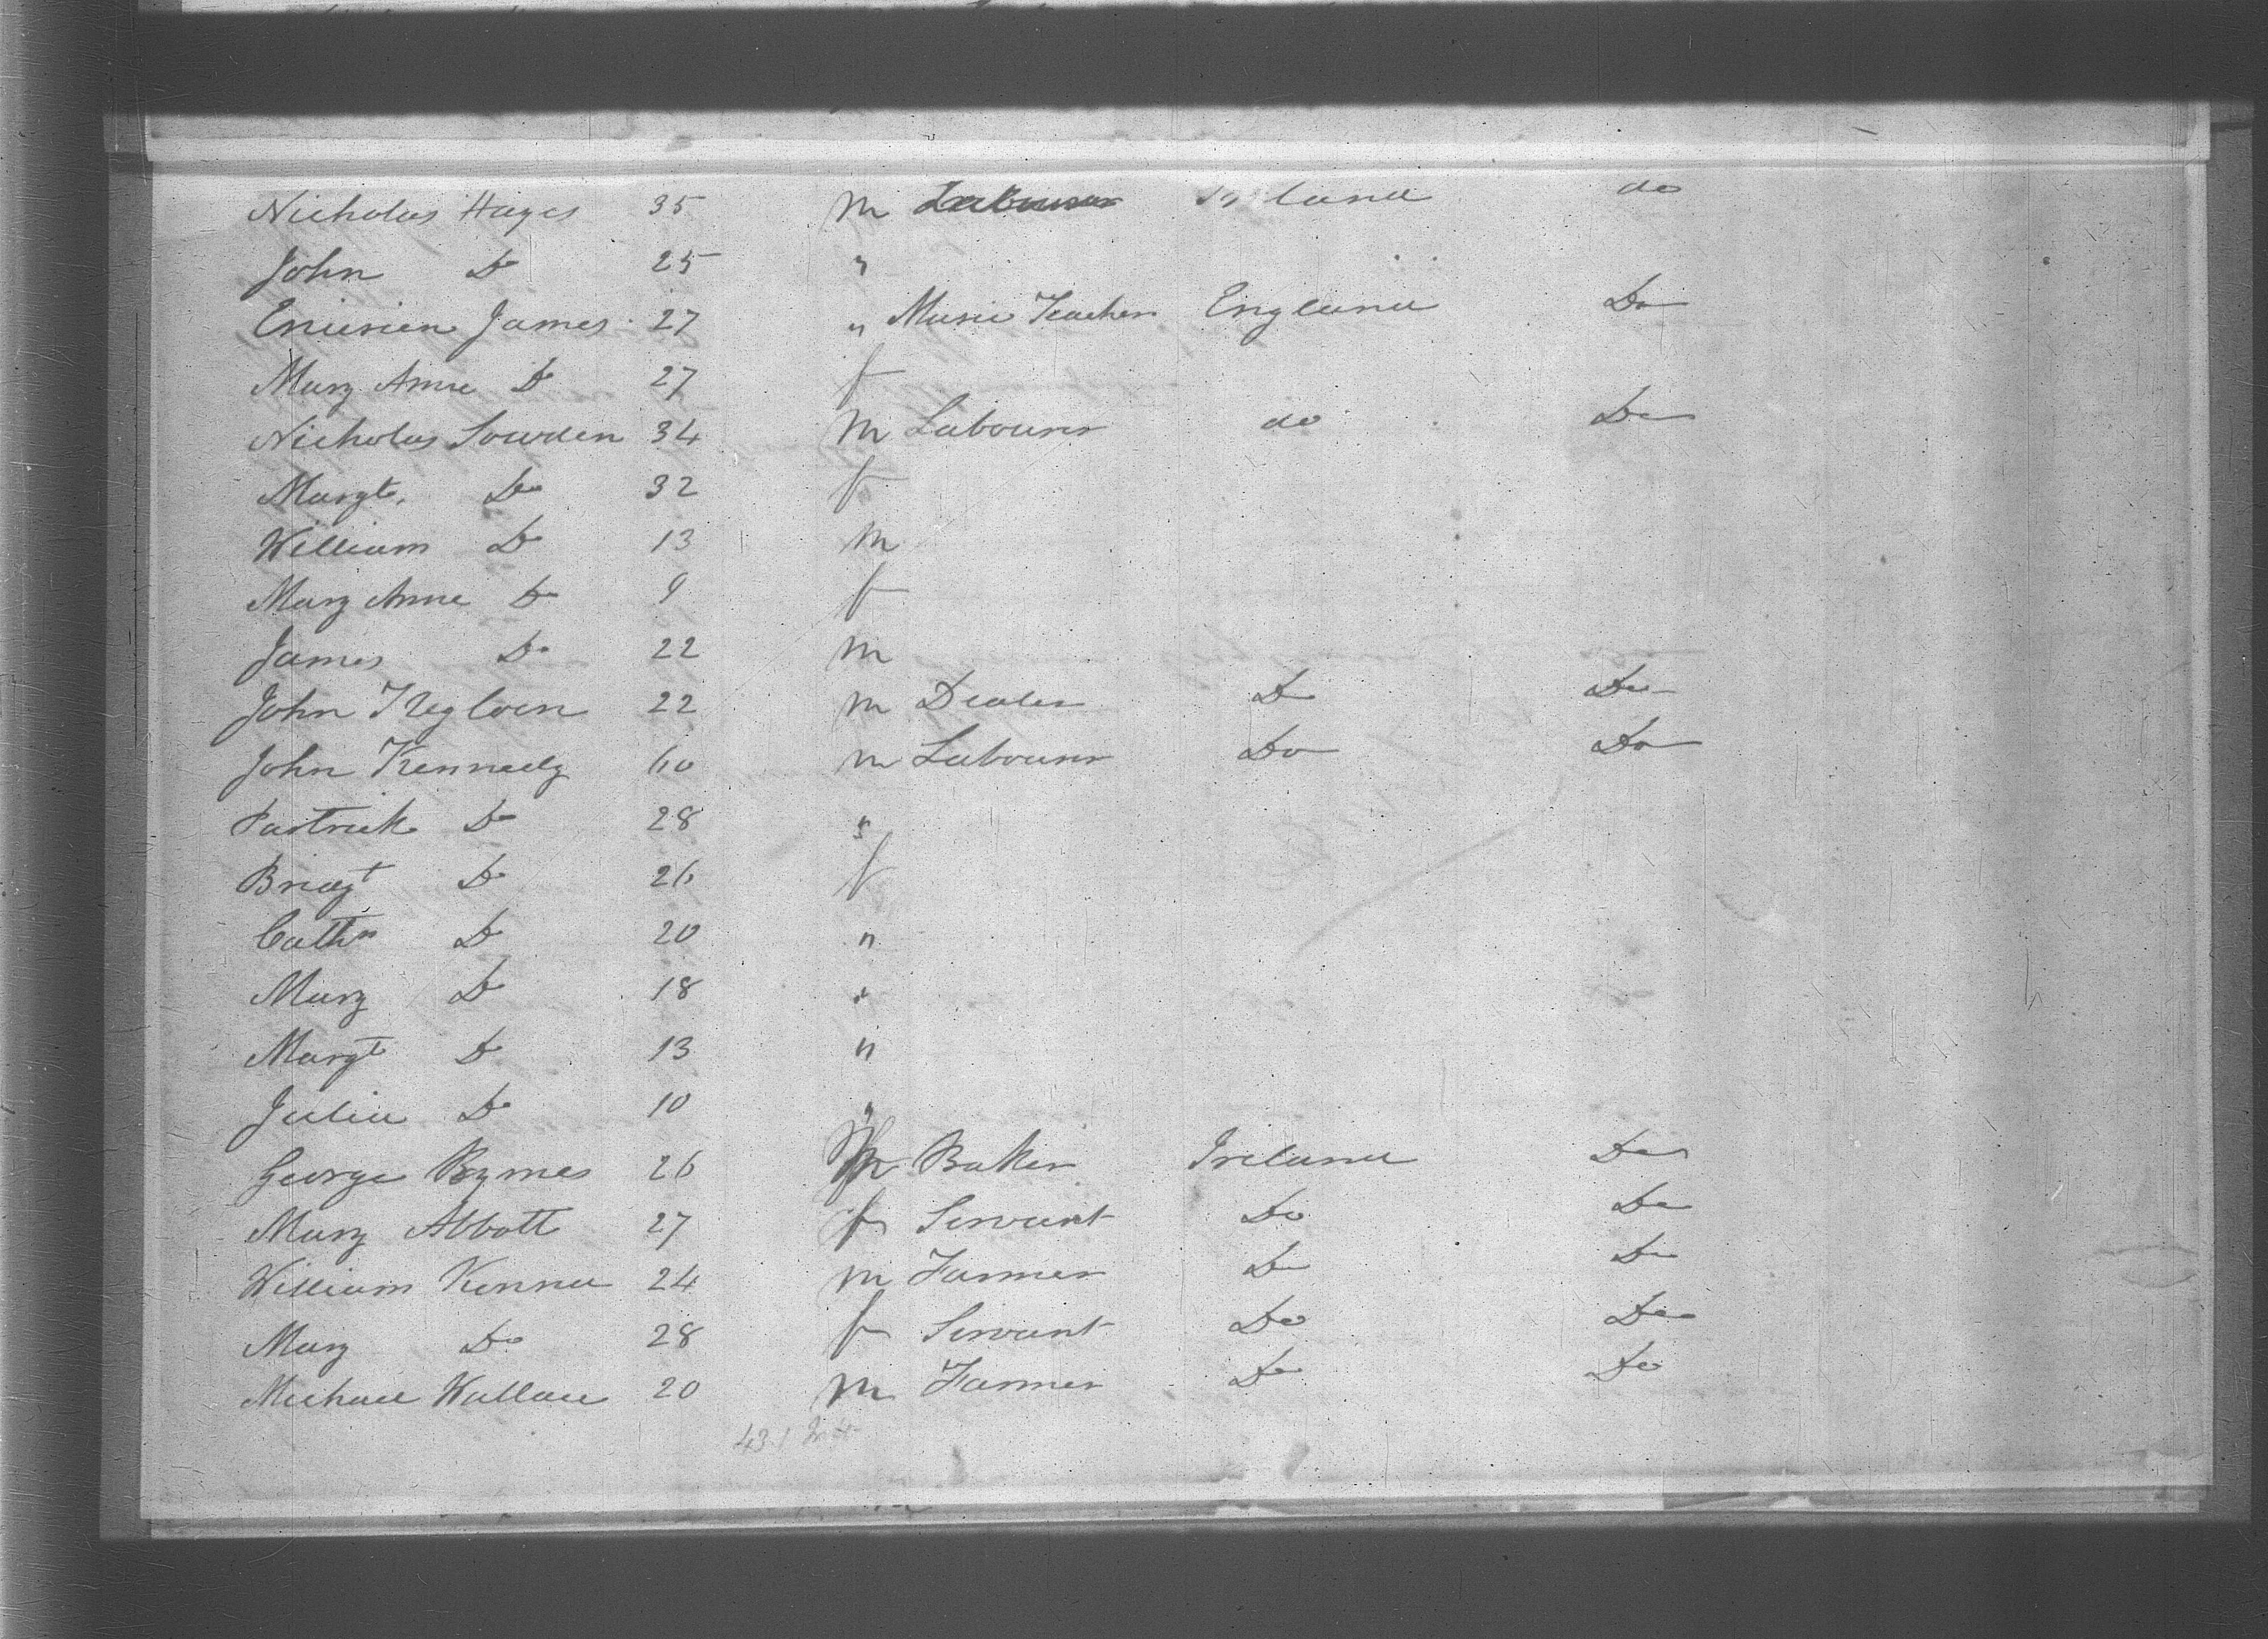 Nicholas Hayes 35 m Labourer Ireland do
John Do 25 "
James 27 " Music Teacher England Do
Mary Anne Do 27 f
Nicholas Sowden 34 m Labourer do Do
Margt. Do 32 f
William Do 13 m
Mary Anne Do 9 f
James Do 22 m
John 22 m Dealer Do Do
John Kennedy 60 m Labourer Do Do
Partrick Do 28 "
Bridgt Do 26 f
Cathn Do 20 "
Mary Do 18 "
Margt Do 13 "
Julia Do 10 "
George Byrnes 26 m Baker Ireland Do
Mary Abbott 27 f Servant Do Do
William Kenna 24 m Farmer Do Do
Mary Do 28 f Servant Do Do
Michael Wallace 20 m Farmer Do Do
431